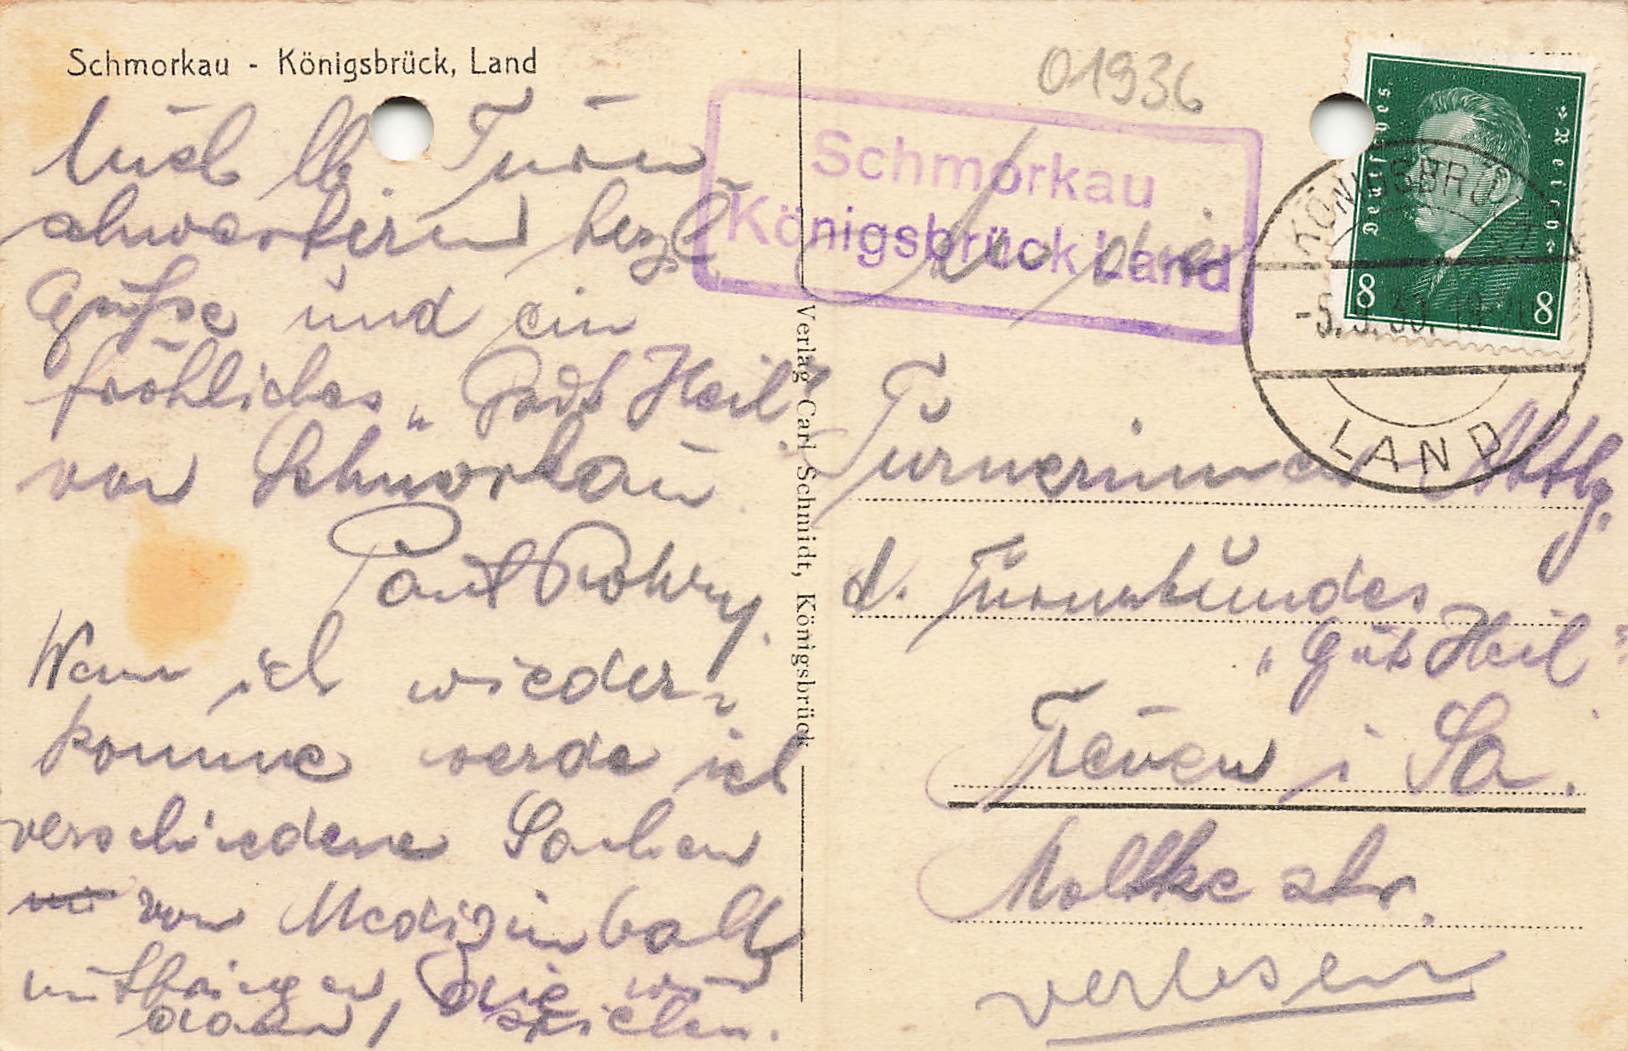 Schmorkau - Königsbrück, Land
Euch lb. Turn-
schwestern herzl.
Grüße und ein
fröhliches „Gut Heil“
von Schmorkau
Paul
Wenn ich wieder-
komme werde ich
verschiedene Sachen
von Medizinball
mitbringen, die wir
dann spielen.
Verlag Carl Schmidt, Königsbrück
01936
Schmorkau
Königsbrück Land
An die
Deutsches Reich
8 8
KÖNIGSBRÜCK
LAND
Turnerinnen Abtlg.
d. Turnerbundes
„Gut Heil“
Treuen i Sa.
Moltke str.
verlesen